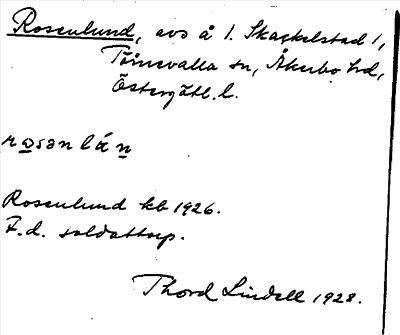 Rosenlund, avs å 1. Skackelstad 1,
Törnevalla sn, Åkerbo hd,
Östergötl. l.
rosənlán
Rosenlund kb 1926.
F.d. soldattorp.
Thord Lindell 1928.